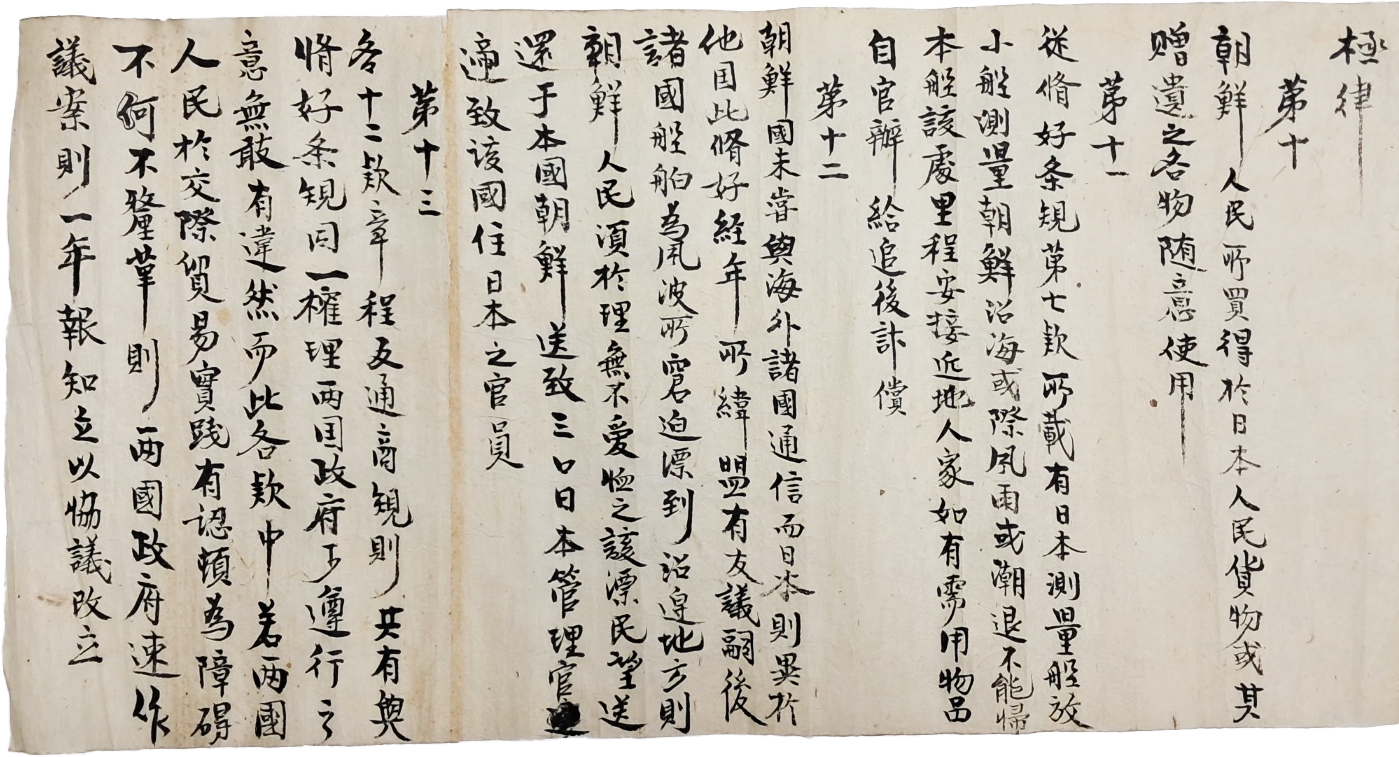 極律
第十
朝鮮 人民所買得於日本人民貨物或其
贈遺之各物随意使用
第十一
従脩好条規第七款所載有日本測量船放
小船測量朝鮮沿海或際風雨或潮退不能帰
本船該處里程安接近地人家如有需用物品
自官辦 給追後計償
第十二
朝鮮國未嘗與海外諸國通信而日本則異於
他国此脩好経年所締盟有友議嗣後
諸國船舶為風波所窘迫漂到沿邊地方則
朝鮮人民須於理無不愛恤之該漂民望送
還于本國朝鮮送致三口日本管理官
逓致該國住日本之官員
第十三
各十二款章程及通商規則共有與
脩好条規同一権理両国政府可遵行之
意無敢有違然而此各款中若両國
人民於交際貿易實践有認頓為障碍
不何不釐革則両國政府速作
議案則一年報知立以協議改立